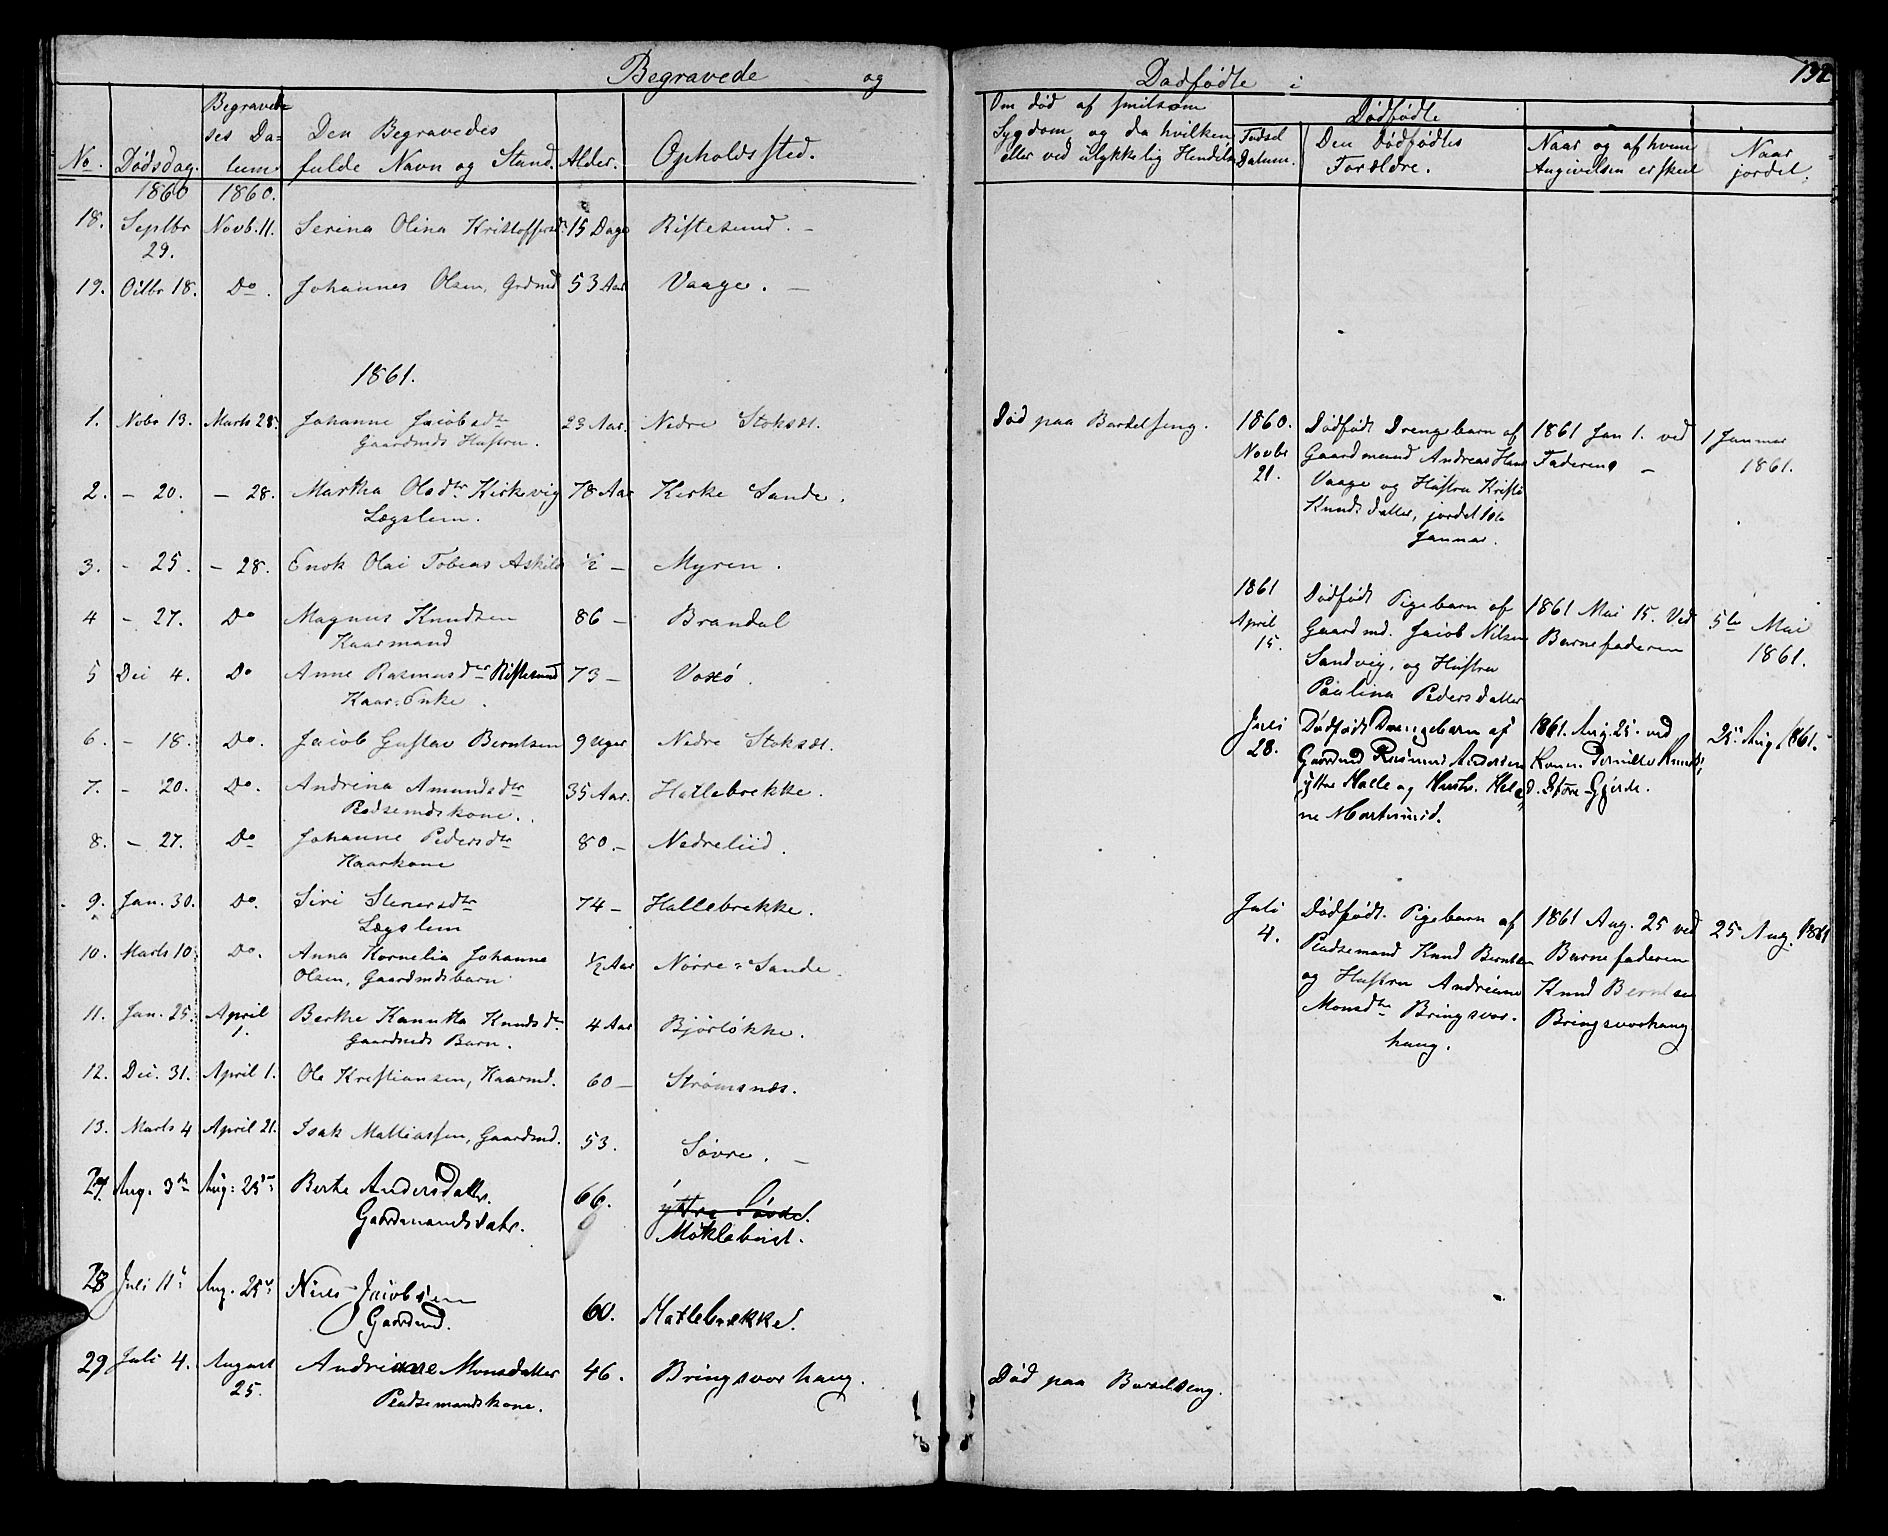 Begravede og
No.
Dødsdag.
Begravedes Datum
Den Begravedes fulde Navn og Stand.
Alder.
Opholdssted.
1860 1860.
18. Septbr 29. Novb. 11. Serina Olina Kristoffersd. 15 Dage Riftesund. –
19. Octbr 18. Do. Johannes Olsen, Grdmd 53 Aar Vaage. –
1861.
1. Nobr 13. Marts 28. Johanne Jacobsdtr 23 Aar. Nedre Stoksæt.
Gaardmds Hustru.
2. – 20. – 28. Martha Olsdtr Kirkevig 78 Aar Kirke Sande.
Lægslem.
3. – 25. – 28. Enok Olai Tobias Askilds ½ – Myren.
4 – 27. Do Magnus Knudsen 86 – Brandal
Kaarmand
5 Dec 4. Do Anne Rasmusdtr Riftesund 73 – Voxø.
Kaar-Enke.
6. – 18. Do. Jacob Gustav Berntsen 9 Uger Nedre Stoksæt.
7. – 20. Do. Andrina Amundsdtr 35 Aar. Hatlebrekke.
Pladsemdskone.
8. – 27. Do Johanne Pedersdtr 80. – Nedreliid.
Kaarkone
9. Jan. 30. Do. Siri Stenersdtr 74 – Hallebrekke.
Lægslem
10. Marts 10. Do. Anna Kornelia Johanne ½ Aar Nørre-Sande.
Olsen, Gaardmdsbarn
11. Jan. 25. April 1. Berthe Kanutta Knudsdtr 4 Aar Bjørløkke.
Gaardmds Barn.
12. Dec. 31. April 1. Ole Kristiansen, Kaarmd. 60 – Strømsnæs.
13. Marts 4 April 21. Isak Mattiassen, Gaardmd. 53. Søvre. –
27. Aug. 3de Aug: 25de Berte Andersdatter. 66. yttre Søvde.
Gaardmandsdatr. Møklebust.
28 Juli 11te Aug. 25de Niels Jacobsen
Gaardmd. 60. Hatlebrekke.
29 Juli 4. August 25. Andriane Monsdatter 46. Bringsvorhaug.
Pladsemandskone.
Dødfødte i 132
Om død af smitsom
Sygdom og da hvilken
eller ved ulykkelig Hendelse
Dødfødte
Fødsel Datum.
Den Dødfødtes Forældre.
Naar og af hvem Angivelsen er skeet
Naar jordet.
Død paa Barselseng.
1860. Novbr 21.
Dødfødt Drengebarn af
Gaardmand Andreas Hans
Vaage og Hustru Kristi
Knudsdatter, jordet 1ste
Januar.
1861 Jan 1. ved
Faderen –
1 Januar
1861.
1861 April 15.
Dødfødt Pigebarn af
Gaardmd. Jacob Nilsen
Sandvig, og Hustru
Paulina Pedersdatter
1861 Mai 15. Ved
Barnefaderen
5te Mai
1861.
Juli 28.
Dødfødt Drengebarn af
Gaardmd Rasmus Andersen
yttre Halle og Hustr. Hele-
ne Martinsd.
1861. Aug. 25. ved
Konen Pernille Knuds-
d. Støre-Gjerde.
25de Aug. 1861.
Juli 4.
Dødfødt. Pigebarn af
Pladsemand Knud Berntsen
og Hustru Andriane
Monsdtr Bringsvor-
haug.
1861 Aug. 25 ved
Barnefaderen
Knud Berntsen
Bringsvorhaug
25 Aug. 1861
Død paa Barselseng.